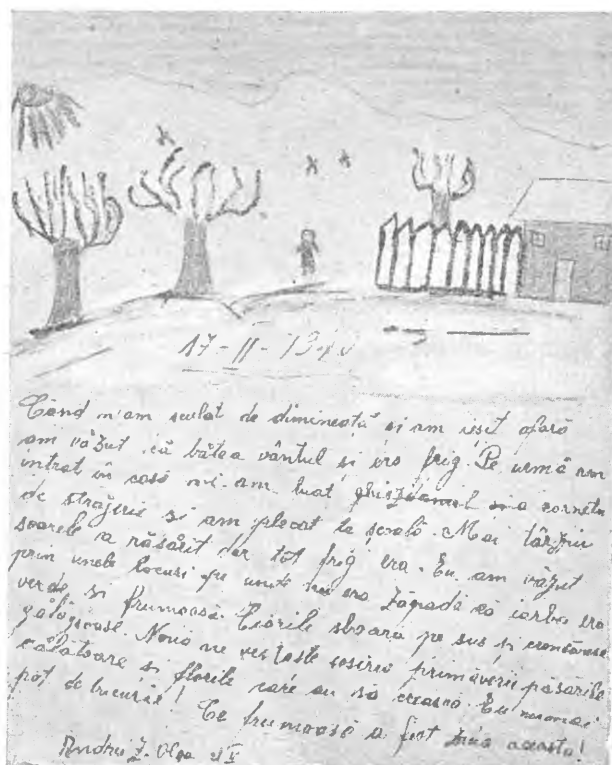 17-II-1940
Când m'am sculat de dimineață și am ieșit afară
am văzut că bătea vântul și era frig. Pe urmă am
intrat în casă mi-am luat ghiozdanul
de străjerie și am plecat la școală. Mai târziu
soarele a răsărit dar tot frig era. Eu am văzut
prin unele locuri pe unde nu era zăpadă că iarba era
verde și frumoasă. Ciorile sboară pe sus și croncănesc
gălăgioase. Nouă ne vestește sosirea primăverii păsările
călătoare și florile care au să crească. Eu nu mai
pot de bucurie! Ce frumoasă a fost ziua aceasta!
Andrei Z. Olga